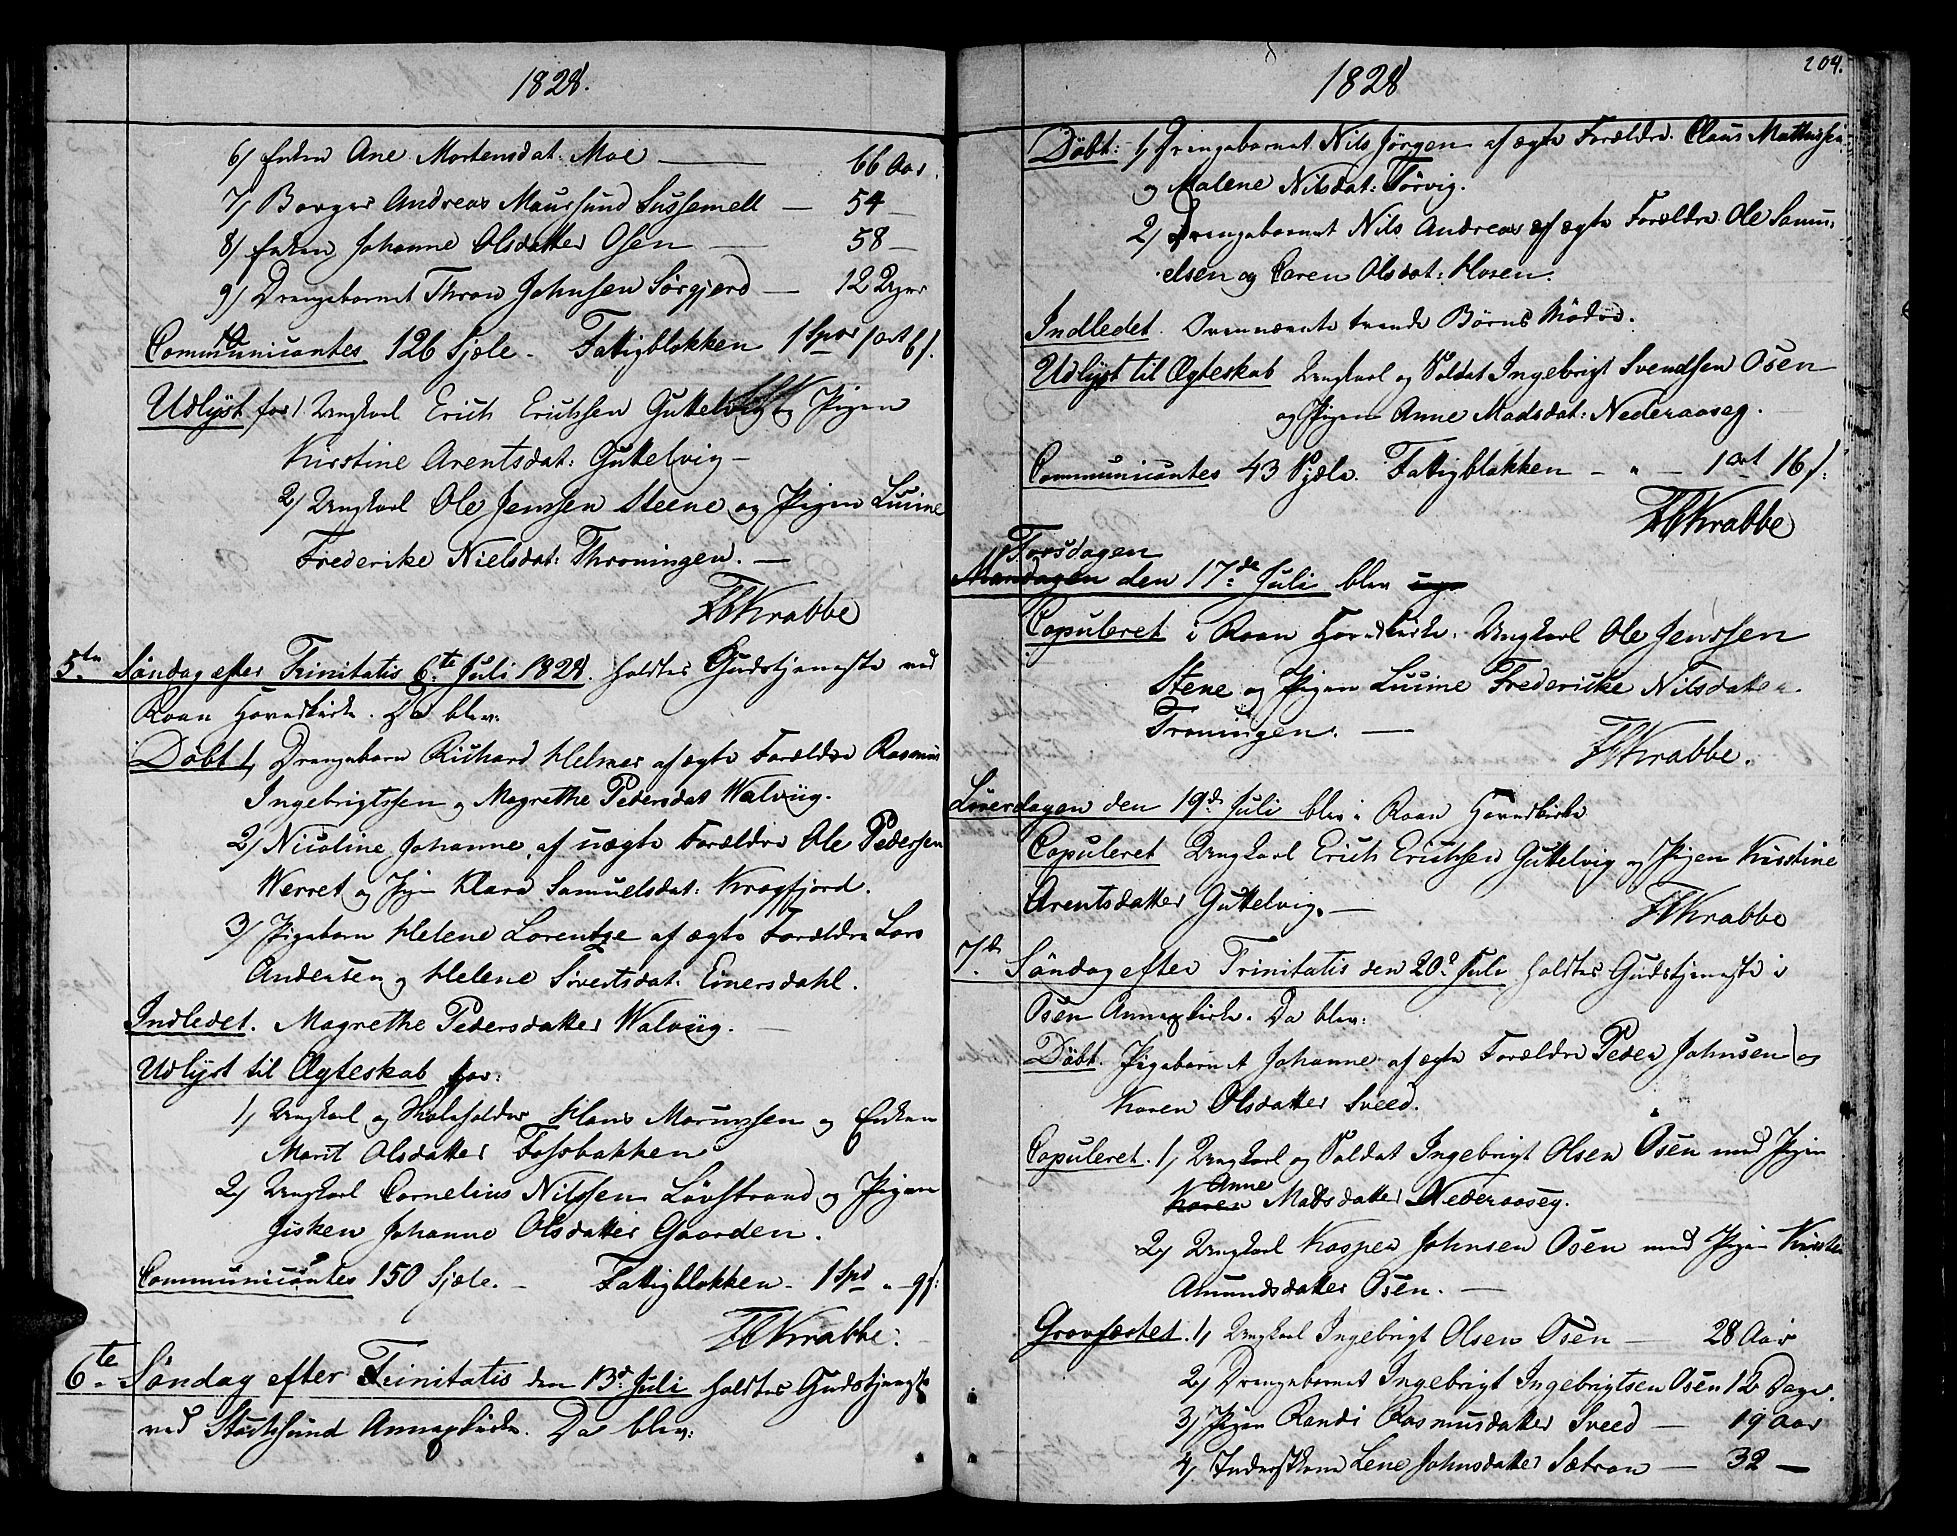 1828.
6) Enken Ane Mortensdat: Moe — 66 Aar.
7) Borger Andreas Maursund Sussemell — 54 —
8) Enken Johanne Olsdatter Osen — 58 —
9) Drengebarnet Thron Johnsen Sørgjerd — 12 Uger
Communicantes 126 Sjæle. Fattigblokken 1 Spd 1 ort 6 s.
Udlyst for 1 Ungkarl Erich Erichsen Guttelvig og Pigen
Kirstine Arentsdat: Guttelvig —
2) Ungkarl Ole Jenssen Steene og Pigen Lucine
Frederike Nielsdat: Throningen. —
FCKrabbe
5te Søndag efter Trinitatis 6te Juli 1828. holdtes Gudstjeneste ved
Roan Hovedkirke. Da blev:
Döbt 1, Drengebarn Richard Helmer af ægte Forældre Rasmus
Ingebrigtssen og Magrethe Pedersdat Walviig.
2) Nicoline Johanne, af uægte Forældre Ole Pedersen
Werret og Pige Klara Samuelsdat: Kragfjord.
3) Pigebarn Helene Lorentze af ægte Forældre Lars
Andersen og Helene Sivertsdat: Einersdahl.
Indledet. Magrethe Pedersdatter Walviig. —
Udlyst til Ægteskab for:
1) Ungkarl og Skoleholder Hans Morinssen og Enken
Marit Olsdatter Fossbakken
2) Ungkarl Cornelius Nilssen Lövstrand og Pigen
Jisken Johanne Olsdatter Gaarden.
Communicantes 150 Sjæle. — Fattigblokken - 1 Spd „ - 9 s:
FCKrabbe.
6te Søndag efter Trinitatis den 13de Juli holdtes Gudstjeneste
ved Stoksund Annexkirke. Da blev:
1828
204.
Döbt: 1, Drengebarnet Nils Jörgen af ægte Forældre Claus Mathissen
og Malene Nilsdat: Törvig.
2) Drengebarnet Nils Andreas af ægte Forældre Ole Samu-
elsen og Caren Olsdat: Hosen.
Indledet. Ovennævnte tvende Börns Mödre.
Udlyst til Ægteskab Ungkarl og Soldat Ingebrigt Svendsen Osen
og Pigen Anne Madsdat: Nederaaseg.
Communicantes 43 Sjæle. Fattigblokken - „ - 1 ort 16 s:
FCKrabbe
Torsdagen
Mandagen den 17de Juli blev
Copuleret i Roan Hovedkirke. Ungkarl Ole Jenssen
Stene og Pigen Lucine Fredericke Nilsdatter
Troningen. —
FCKrabbe.
Löverdagen den 19de Juli blev i Roan Hovedkirke
Copuleret Ungkarl Erich Erichsen Guttelvig og Pigen Kirstine
Arentsdatter Guttelvig. —
FCKrabbe
7de Søndag efter Trinitatis den 20de Juli holdtes Gudstjeneste i
Osen Annexkirke. Da blev:
Döbt. Pigebarnet Johanne af ægte Forældre Peder Johnsen og
Karen Olsdatter Sveed.
Copuleret. 1, Ungkarl og Soldat Ingebrigt Olsen Osen med Pigen
Anne
Karen Madsdatter Nederaaseg.
2) Ungkarl Kasper Johnsen Osen med Pigen Kirstine
Amundsdatter Osen. —
Gravfæstet. 1, Ungkarl Ingebrigt Olsen Osen — 28 Aar
2) Drengebarnet Ingebrigt Ingebrigtsen Osen 12 Dage.
3) Pigen Randi Rasmusdatter Sveed — 19 Aar
4) Inderstkone Lene Johnsdatter Sætran — 32 —